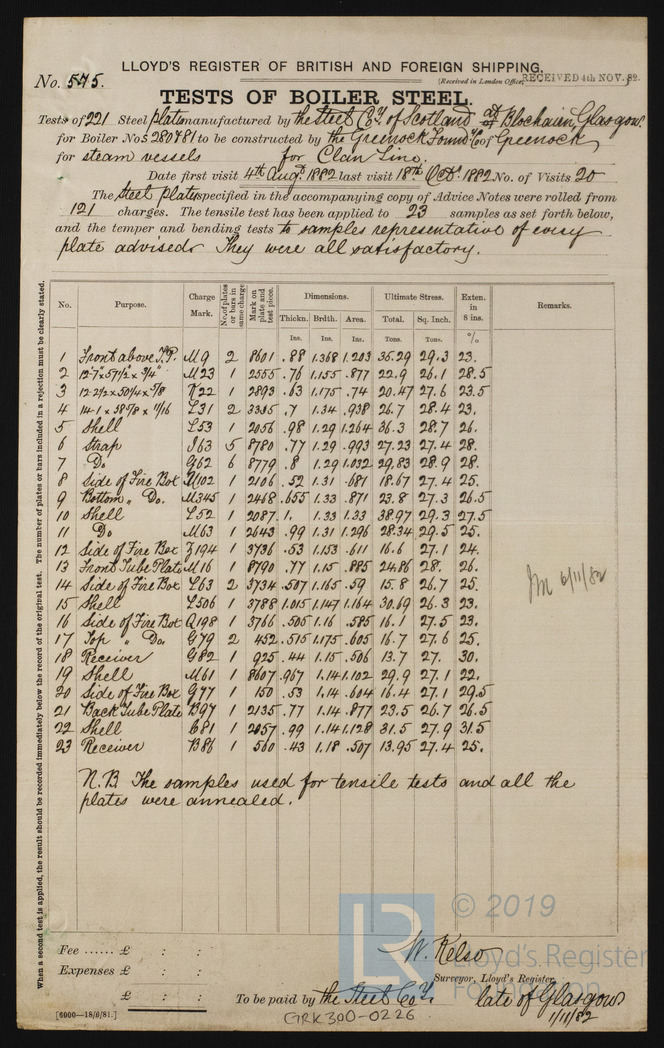 LLOYD'S REGISTER OF BRITISH AND FOREIGN SHIPPING.
No. 575.
(Received in London Office, RECEIVED 4th NOV. 82.
TESTS OF BOILER STEEL.
Tests of 221 Steel plates manufactured by the Steel Coy. of Scotland at Blochairn, Glasgow.
for Boiler Nos 280 & 81 to be constructed by the Greenock Foundy Co of Greenock
for steam vessels for Clan Line.
Date first visit 4th Augt 1882 last visit 18th Octr. 1882 No. of Visits 20
The Steel plates specified in the accompanying copy of Advice Notes were rolled from
121 charges. The tensile test has been applied to 23 samples as set forth below,
and the temper and bending tests to samples representative of every
plate advised. They were all satisfactory.
When a second test is applied, the result should be recorded immediately below the record of the original test. The number of plates or bars included in a rejection must be clearly stated.
No. Purpose. Charge Mark. No. of plates or bars in same charge Mark on plate and test piece. Dimensions. Ultimate Stress. Exten. in 8 ins. Remarks.
Thickn. Brdth. Area. Total. Sq. Inch.
Ins. Ins. Ins. Tons. Tons. %
1 Front above T.P. M9 2 8601 .88 1.368 1.203 35.29 29.3 23.
2 12-7 x 57 1/2 x 3/4" M23 1 2555 .76 1.155 .877 22.9 26.1 28.5
3 12-2 1/2 x 50 1/4 x 5/8 K22 1 2893 .63 1.175 .74 20.47 27.6 23.5
4 14-1 x 58 7/8 x 11/16 L31 2 3305 .7 1.34 .938 26.7 28.4 23.
5 Shell L53 1 2056 .98 1.29 1.264 36.3 28.7 26.
6 Strap I63 5 8780 .77 1.29 .993 27.23 27.4 28.
7 Do. G62 6 8779 .8 1.29 1.032 29.83 28.9 28.
8 Side of Fire Box M102 1 2106 .52 1.31 .681 18.67 27.4 25.
9 Bottom " Do. M345 1 2468 .655 1.33 .871 23.8 27.3 26.5
10 Shell L52 1 2087 1. 1.33 1.33 38.97 29.3 27.5
11 Do M63 1 2643 .99 1.31 1.296 28.34 29.5 25.
12 Side of Fire Box Z194 1 3736 .53 1.153 .611 16.6 27.1 24.
13 Front Tube Plate M16 1 8790 .77 1.15 .885 24.86 28. 26.
14 Side of Fire Box L63 2 3734 .507 1.165 .59 15.8 26.7 25.
15 Shell L506 1 3788 1.015 1.147 1.164 30.69 26.3 23.
16 Side of Fire Box Q198 1 3766 .505 1.16 .585 16.1 27.5 23.
17 Top " Do. G79 2 452 .515 1.175 .605 16.7 27.6 25.
18 Receiver G82 1 925 .44 1.15 .506 13.7 27. 30.
19 Shell M61 1 8607 .967 1.14 1.102 29.9 27.1 22.
20 Side of Fire Box G77 1 150 .53 1.14 .604 16.4 27.1 29.5
21 Back Tube Plate B97 1 2135 .77 1.14 .877 23.5 26.7 26.5
22 Shell C81 1 2057 .99 1.14 1.128 31.5 27.9 31.5
23 Receiver B86 1 560 .43 1.18 .507 13.95 27.4 25.
6/11/82
N.B. The samples used for tensile tests and all the
plates were annealed.
© 2019
Lloyd's Register
Foundation
LR
Fee ...... £ : :
W. Kelso
Expenses £ : :
Surveyor, Lloyd's Register,
£ : :
To be paid by the Steel Coy. late of Glasgow
1/11/82
[6000—18/6/81.]
GRK300-0226